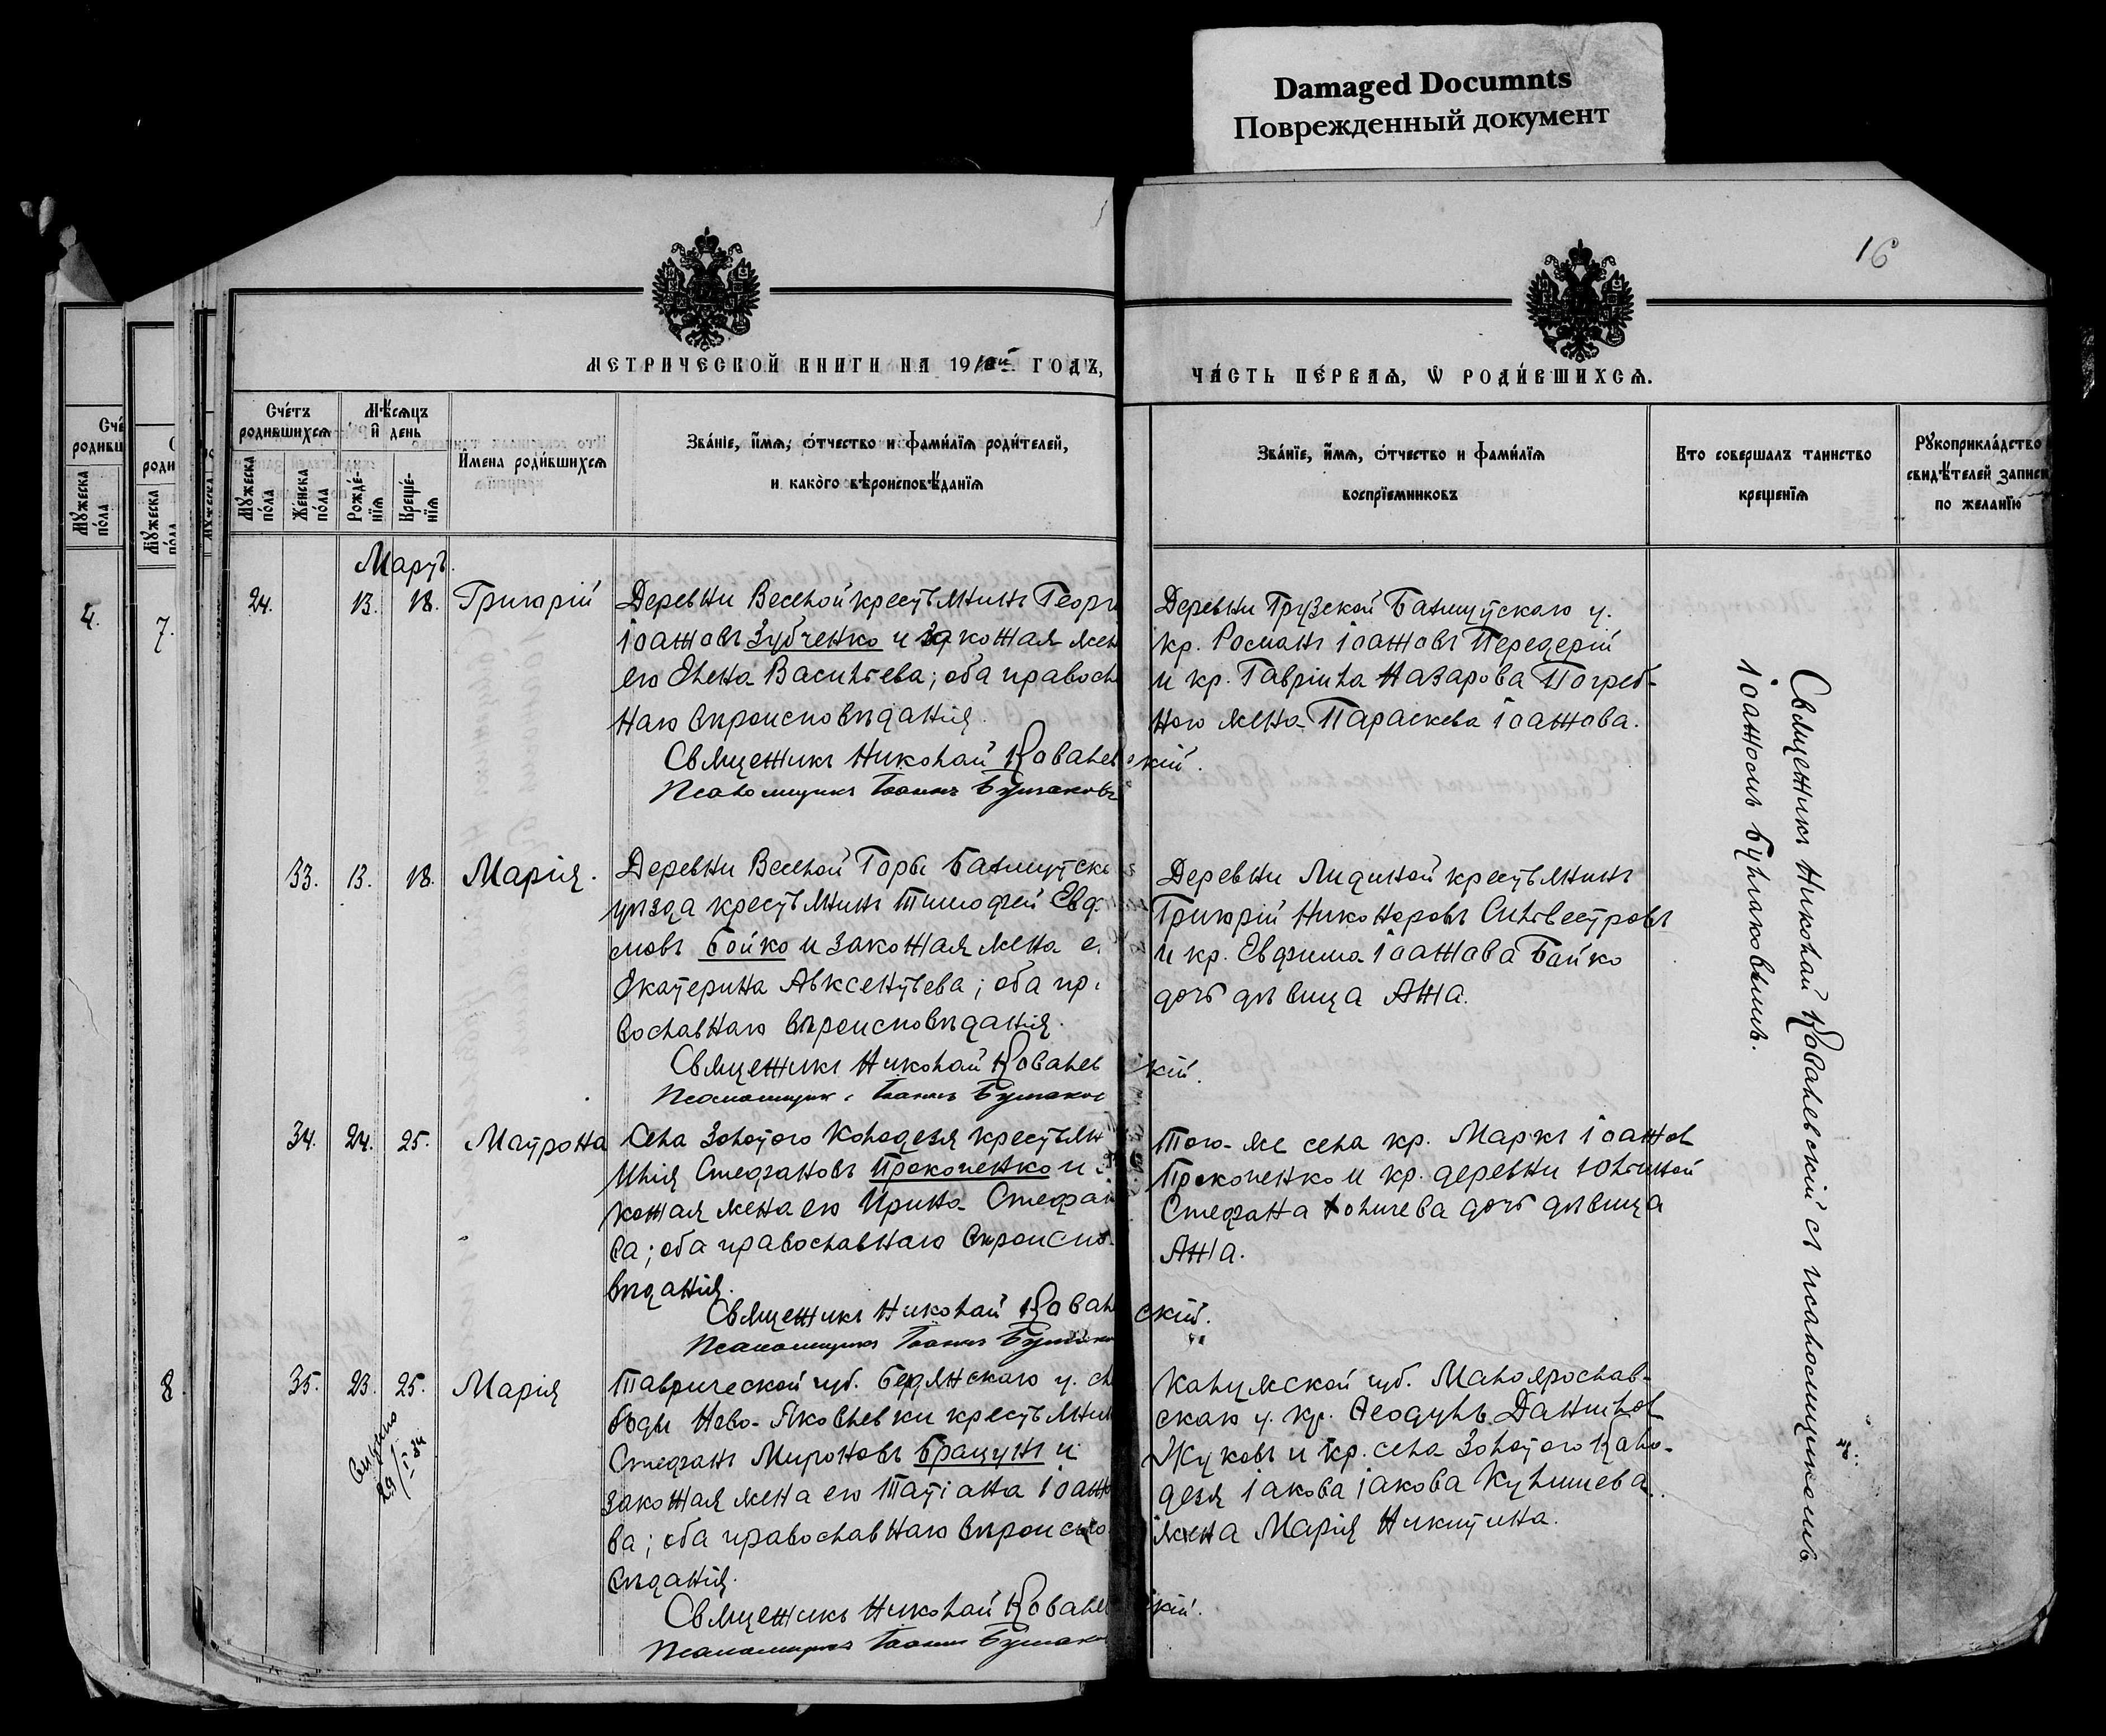 Damaged Documnts
Поврежденный документ
16
МЕТРИЧЕСКОЙ КНИГИ НА 1910й ГОДЪ,
ЧАСТЬ ПЕРВАЯ, Ѡ РОДИВШИХСЯ.
Счетъ родившихся
Мужеска пола
Женска пола
Мѣсяцъ и день
Рожденія
Крещенія
Имена родившихся
Званіе, имя, отчество и фамилія родителей,
и какого вѣроисповѣданія
Званіе, имя, отчество и фамилія
воспріемниковъ
Кто совершалъ таинство
крещенія
Рукоприкладство
свидѣтелей записи
по желанію
Мартъ.
24. 13. 18. Григорій
Деревни Веселой крестьянинъ Георг
Іоанновъ Зубченко и законная жен
его Елена Васильева; оба правосл
наго вѣроисповѣданія.
Священникъ Николай Ковалевскій.
Псаломщикъ Іоаннъ Бушаковъ
Деревни Грузской Бахмутскаго у.
кр. Романъ Іоанновъ Передерій
и кр. Гавріила Назарова Погреб-
ного жена Параскева Іоаннова.
33. 13. 18. Марія.
Деревни Веселой Горы Бахмутск
уѣзда крестьянинъ Тимофей Евд
мовъ Бойко и законная жена е
Екатерина Авксентьева; оба пр
вославнаго вѣроисповѣданія.
Священникъ Николай Ковалевскій.
Псаломщикъ Іоаннъ Бушаков
Деревни Лидиной крестьянинъ
Григорій Никоноровъ Сильвестровъ
и кр. Евфима Іоаннова Бойко
дочь дѣвица Анна.
34. 24. 25. Матрона
Села Золотого Колодезя крестьян
Илія Стефановъ Прокопенко и з
конная жена его Ирина Стефан
ва; оба православнаго вѣроиспо-
вѣданія.
Священникъ Николай Ковалевскій.
Псаломщикъ Іоаннъ Бушако
Того-же села кр. Маркъ Іоаннов
Прокопенко и кр. деревни Юльиной
Стефана
дочь дѣвица
Анна.
35. 23. 25. Марія
29/I 34
Таврической губ. Бердянскаго у. сл
боды Ново-Яковлевки крестьянин
Стефанъ Мироновъ Брацунъ и
законная жена его Татіана Іоанно
ва; оба православнаго вѣроиспо
вѣданія.
Священникъ Николай Ковалевскій.
Псаломщикъ Іоаннъ Бушако
Калужской губ. Малоярослав-
скаго у. кр. Ѳеодулъ Данилов
Жуковъ и кр. села Золотого Коло-
дезя Іакова Іакова Кулишева
жена Марія Никитина.
Священникъ Николай Ковалевскій съ псаломщикомъ
Іоанномъ Бушаковымъ.
4.
7.
8